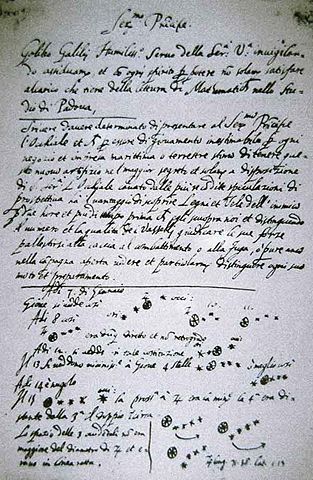 Ser.mo Principe.
Galileo Galilej Humiliss.o Servo della Ser.tà V.a invigilan-
do assiduam.te, et con ogni spirito p potere nõ solam.te satisfare
alcarico che tiene della lettura di Mathematiche nello Stu-
dio di Padova,
Scrivere d'havere determinato di presentare al Ser.mo Principe
l'Occhiale et p essere di giovamento inestimabile p ogni
negozio et impresa marittima o terrestre stimo di tenere que-
sto nuovo artifizio nel maggior segreto et solam.te a disposizione
di S. Ser.tà L'Occhiale cavato dalle più recondite speculazioni di
prospettiva ha il vantaggio di scoprire Legni et Vele dell'inimico
p due hore et più di tempo prima ch'egli scuopra noi et distinguendo
il numero et la qualità dei Vasselli giudicare le sue forze
pallestirsi alla caccia al combattimento o alla fuga, o pure anco
nella campagna aperta vedere et particolarm.te distinguere ogni suo
moto et preparamento
Adi 7. di Gennaio
Giove si vede così
Adi 8 così
era dūq diretto et nõ retrogrado
Adi 12 si vedde in tale costituzione
Il 13 si veddero vicinissime a Giove 4 stelle
Adi 14 è nugolo
Il 15
la pross.a a 4 era la min.re la 4.a era di-
stante dalla 3.a il doppio circa
Lo spazio delle 3 occidentali nõ era
maggiore del diametro di 4 et e-
rano in linea retta.